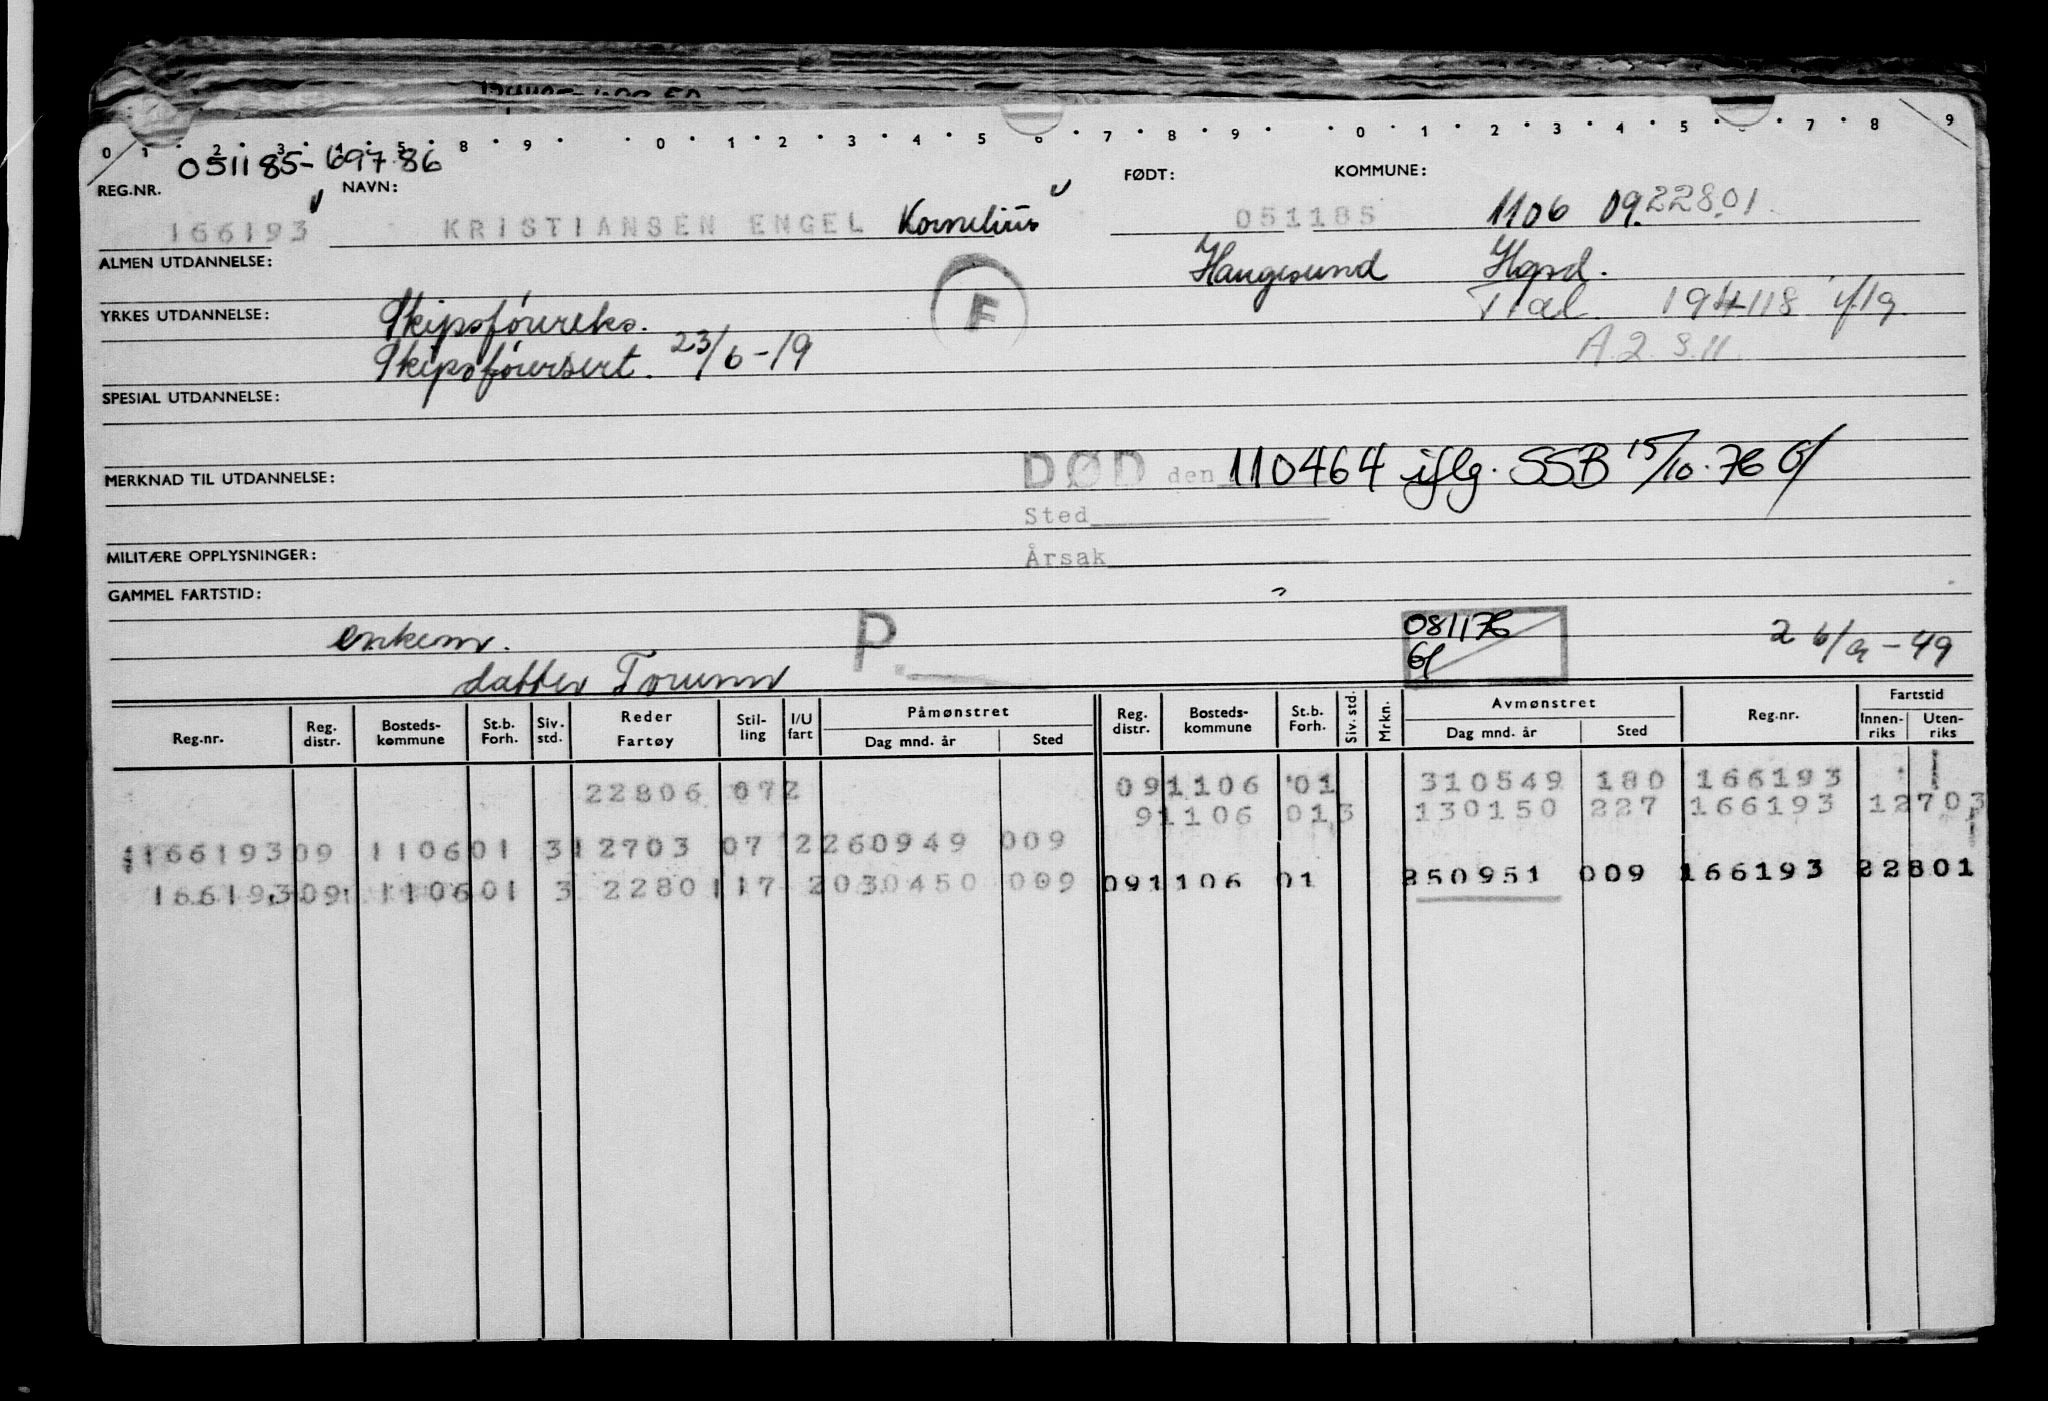 0 1 2 3 4 5 8 9 0 1 2 3 4 5 6 7 8 9 0 1 2 3 4 5 6 7 8 9
051185-69786
REG.NR. NAVN: FØDT: KOMMUNE:
166193 KRISTIANSEN ENGEL Kornelius 051185 1106 09.228.01
ALMEN UTDANNELSE: Haugesund Hgsd.
YRKES UTDANNELSE: Skipsførereks. F 194118
Skipsførersert. 23/6-19 A.2 8.11
SPESIAL UTDANNELSE:
DØD den 110464 iflg. SSB 15/10-76
MERKNAD TIL UTDANNELSE:
Sted
MILITÆRE OPPLYSNINGER: Årsak
GAMMEL FARTSTID:
enkem. P. 081176 2 6/9-49
datter Torunn
Reg.nr. Reg. distr. Bosteds-kommune St.b. Forh. Siv. std. Reder Fartøy Stil-ling I/U fart Påmønstret Dag mnd. år Sted Reg. distr. Bosteds-kommune St.b. Forh. Siv. std. Mrkn. Avmønstret Dag mnd. år Sted Reg.nr. Fartstid Innen-riks Uten-riks
22806 072 091106 01 310549 180 166193
91106 013 130150 227 166193 12703
166193 09 1106 01 3 12703 07 2 260949 009
166193 09 1106 01 3 22801 17 2 030450 009 091106 01 250951 009 166193 22801